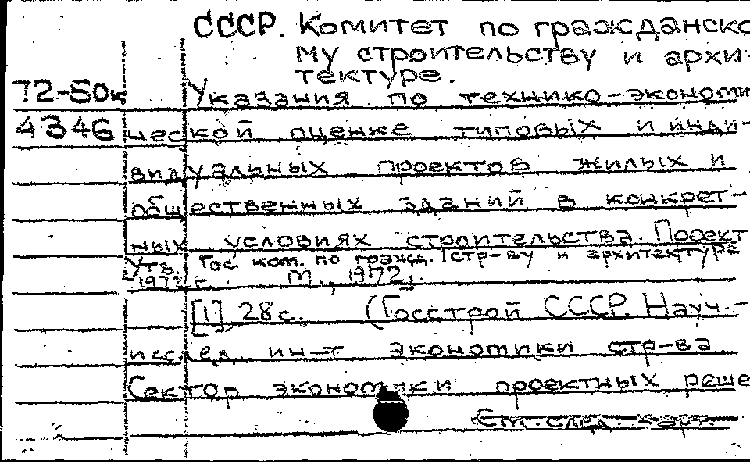 СССР. Комитет по гражданско
му строительству и архи-
тектуре.
72-50к Указания по технико-экономи
4346 ческой оценке типовых и инди-
видуальных проектов жилых и
общественных зданий в конкрет-
ных условиях строительства. Проект
Утв. Гос. ком. по гражд. стр-ву и архитектуре
1972 г. М., 1972.
[1], 28 с. (Госстрой СССР. Науч.-
исслед. ин-т экономики стр-ва
Сектор экономики проектных реше
См. след. карт.